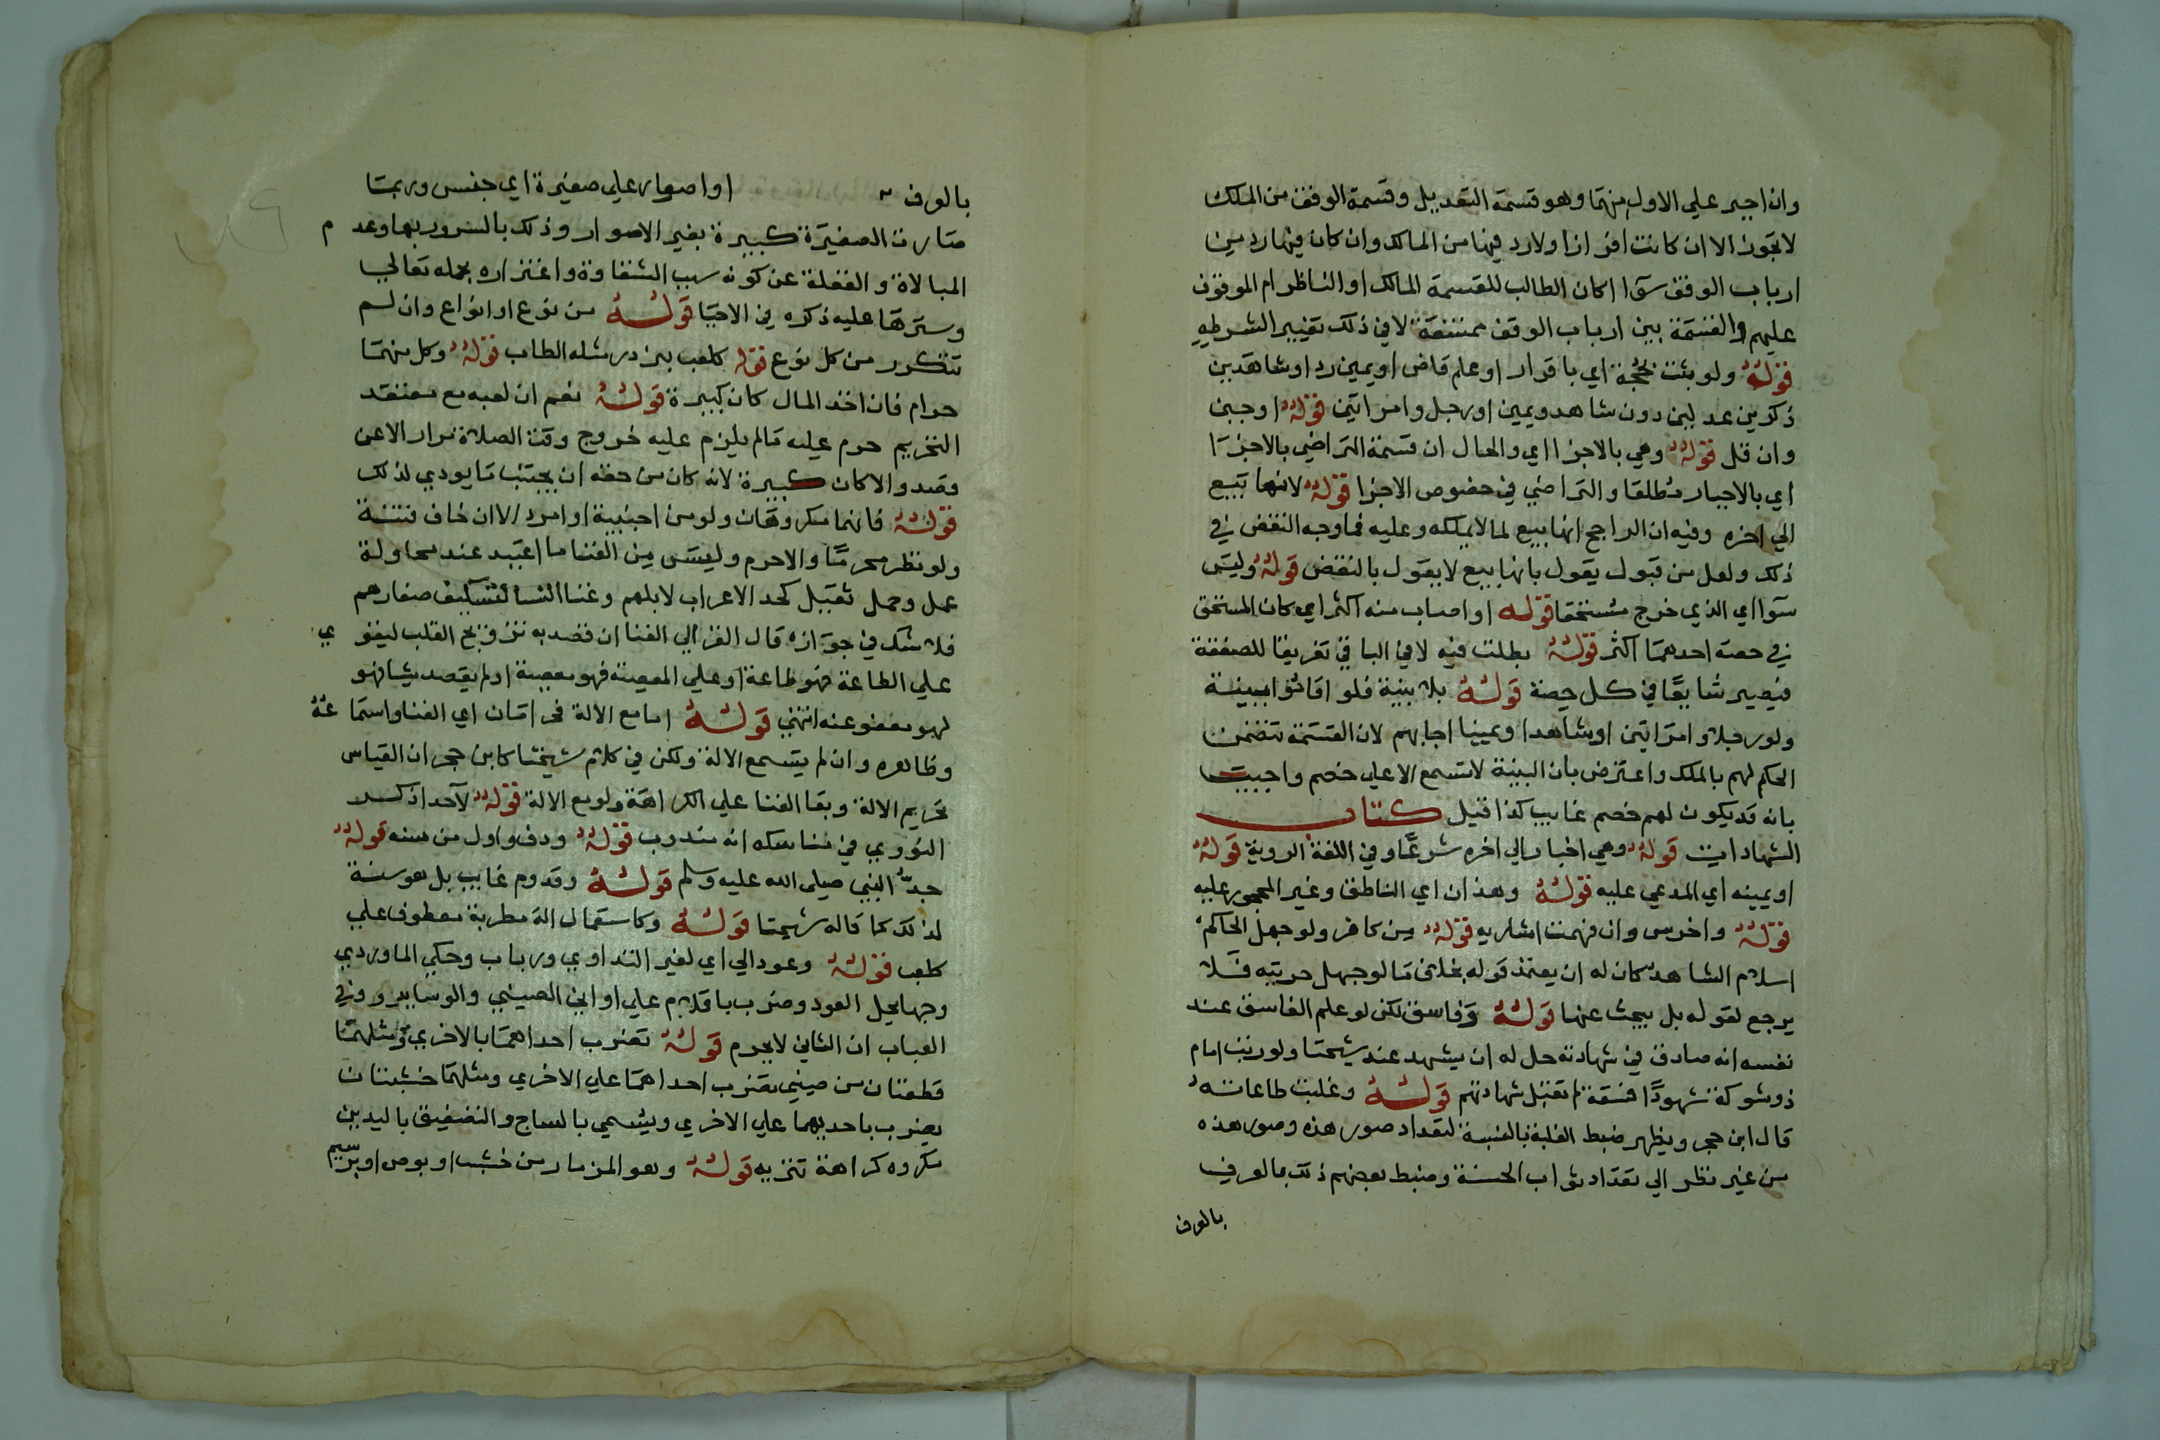 وان اجبر علي الاول منهما وهو قسمة التعديل وقسمة الوقف من الملك
لا تجوز الا ان كانت افرازا ولا رد فيها من المالك وان كان فيها رد من
ارباب الوقف سوا اكان الطالب للقسمة المالك او الناظر ام الموقوف
عليهم والقسمة بين ارباب الوقف ممتنعة لا في ذلك تغيير الشرطه
قوله ولو بثت بحجة اي باقرار او علم قاض او يمين رد او شاهدين
ذكرين عدلين دون شاهد ويمين او رجل وامراتين قوله او جبن
وان قل قوله وهي بالاجزا اي والحال ان قسمة التراضي بالاجزا
اي بالاجبار مطلقا والتراضي في خصوص الاجزا قوله لانها بيع
الي اخره وفيه ان الراجح انها بيع لما لا يملكه وعليه فما وجه النقض في
ذلك ولعل من قبول يقول بانها بيع لا يقول بالنقض قوله وليس
سوا اي الذي خرج مستحقا قوله او اصاب منه اكثر اي كان المستحق
في حصة احدهما اكثر قوله بطلت فيه لا في الباقي تفريقا للصفقة
فيصير شايعا في كل حصة قوله بلا بينة فلو اقاموا بينة
ولو رجلا وامراتين او شاهدا ويمينا اجابهم لان القسمة تتضمن
الحكم لهم بالملك واعترض بان البينة لا تسمع الا علي خصم واجيب
بانه قد يكون لهم خصم غايب كذا قيل كتاب
الشهادات قوله وهي اخبار الي اخره شرعا وفي اللغة الروية قوله
او يمينه اي المدعي عليه قوله وهذان اي الناطق وغير المحجور عليه
قوله واخرس وان فهمت اشاريه قوله من كافر ولو جهل الحاكم
اسلام الشاهد كان له ان يعتمد قوله بخلاف ما لو جهل حريته فلا
يرجع لقوله بل يبحث عنها قوله وفاسق لكن لو علم الفاسق عند
نفسه انه صادق في شهادته حل له ان يشهد عند شيخنا ولو رتب امام
ذو شوكة شهودا فسقة لم تقبل شهادتهم قوله وغلبت طاعاته
قال ابن حجر ويظهر ضبط الغلبة بالنسبة لتعداد صور هذه وصور هذه
من غير نظر الي تعداد ثواب الحسنة وضبط بعضهم ذلك بالعرف
بالعرف
بالعرف او اصوار علي صغيرة اي جنس وربما
صارت الصغيرة كبيرة بغير الاصوار وذلك بالسرور بها وعدم
المبالاة والغفلة عن كونه سبب الشقاوة واغتراره بحمله تعالي
وسترها عليه ذكره في الاحيا قوله من نوع او انواع وان لم
تتكرر من كل نوع قوله كلعب بنرد مثله الطاب قوله وكل منهما
حرام فان اخذ المال كان كبيرة قوله نعم ان لعبه مع معتقد
التحريم حرم عليه ما لم يلزم عليه خروج وقت الصلاة مرارا لا عن
قصد والا كان كبيرة لانه كان من حقه ان يجتنب ما يودي لذلك
قوله فانهما مكروهان ولو من اجنبية او امرد الا ان خاف فتنة
ولو نظر محرما والا حرم وليس من الغنا ما اعتيد عند محاولة
عمل وحمل ثقيل كحد الاعراب لابلهم وغنا النسا لتسكيف صغارهم
فلا شك في جوازه قال الغزالي الغنا ان قصد به ترويح القلب ليقوي
علي الطاعة فهو طاعة او علي المعصية فهو معصية او لم يقصد شيا فهو
لهو معفو عنه انتهي قوله اما مع الالة فحرامان اي الغنا واستماعه
وظاهره وان لم يتسمع الالة ولكن في كلام شيخنا كابن حجر ان القياس
تحريم الالة وبقا الغنا علي الكراهة ولو مع الالة قوله لاحد ا ذكر
النووي في مناسكه انه مندوب قوله ودف واول من سنه قوله
جد النبي صلي الله عليه وسلم قوله وقدوم غايب بل هو سنة
لذلك كما قاله شيخنا قوله وكاستعمال الة مطربة معطوف علي
كلعب قوله وعود الي اي لغير التداوي ورباب وحكي الماوردي
وجها بحل العود وضرب باقلام علي اواني الصيني والوساير وفي
العباب ان الثاني لا يحرم قوله تضرب احداهما بالاخري ومثلهما
قطعتان من صيني يضرب احداهما علي الاخري ومثلهما خشبتان
يضرب باحديهما علي الاخري ويسمي بالساج والتصفيق باليدين
مكروه كراهة تنزيه قوله وهو المزمار من خشب او بوص او برسيم